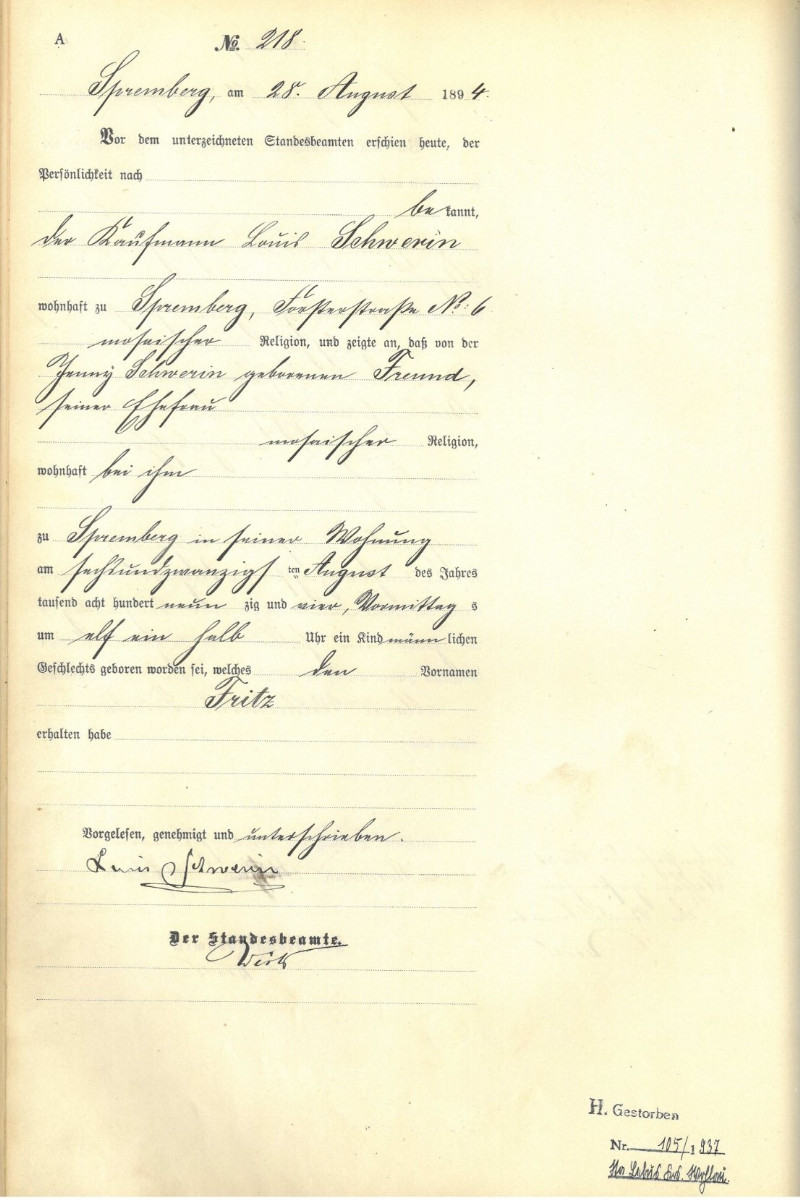 A
No. 218.
Spremberg, am 28. August 1894.
Vor dem unterzeichneten Standesbeamten erschien heute, der
Persönlichkeit nach
bekannt,
der Kaufmann Louis Schwerin
wohnhaft zu Spremberg, Forsterstraße No: 6
mosaischer Religion, und zeigte an, daß von der
Jenny Schwerin geborenen Freund,
seiner Ehefrau
mosaischer Religion,
wohnhaft bei ihm
zu Spremberg in seiner Wohnung
am sechsundzwanzigsten August des Jahres
tausend acht hundert neunzig und vier, Vormittags
um elf ein halb Uhr ein Kind männlichen
Geschlechts geboren worden sei, welches den Vornamen
Fritz
erhalten habe
Vorgelesen, genehmigt und unterschrieben.
Louis Schwerin
Der Standesbeamte.
H. Gestorben
Nr. 105/1937